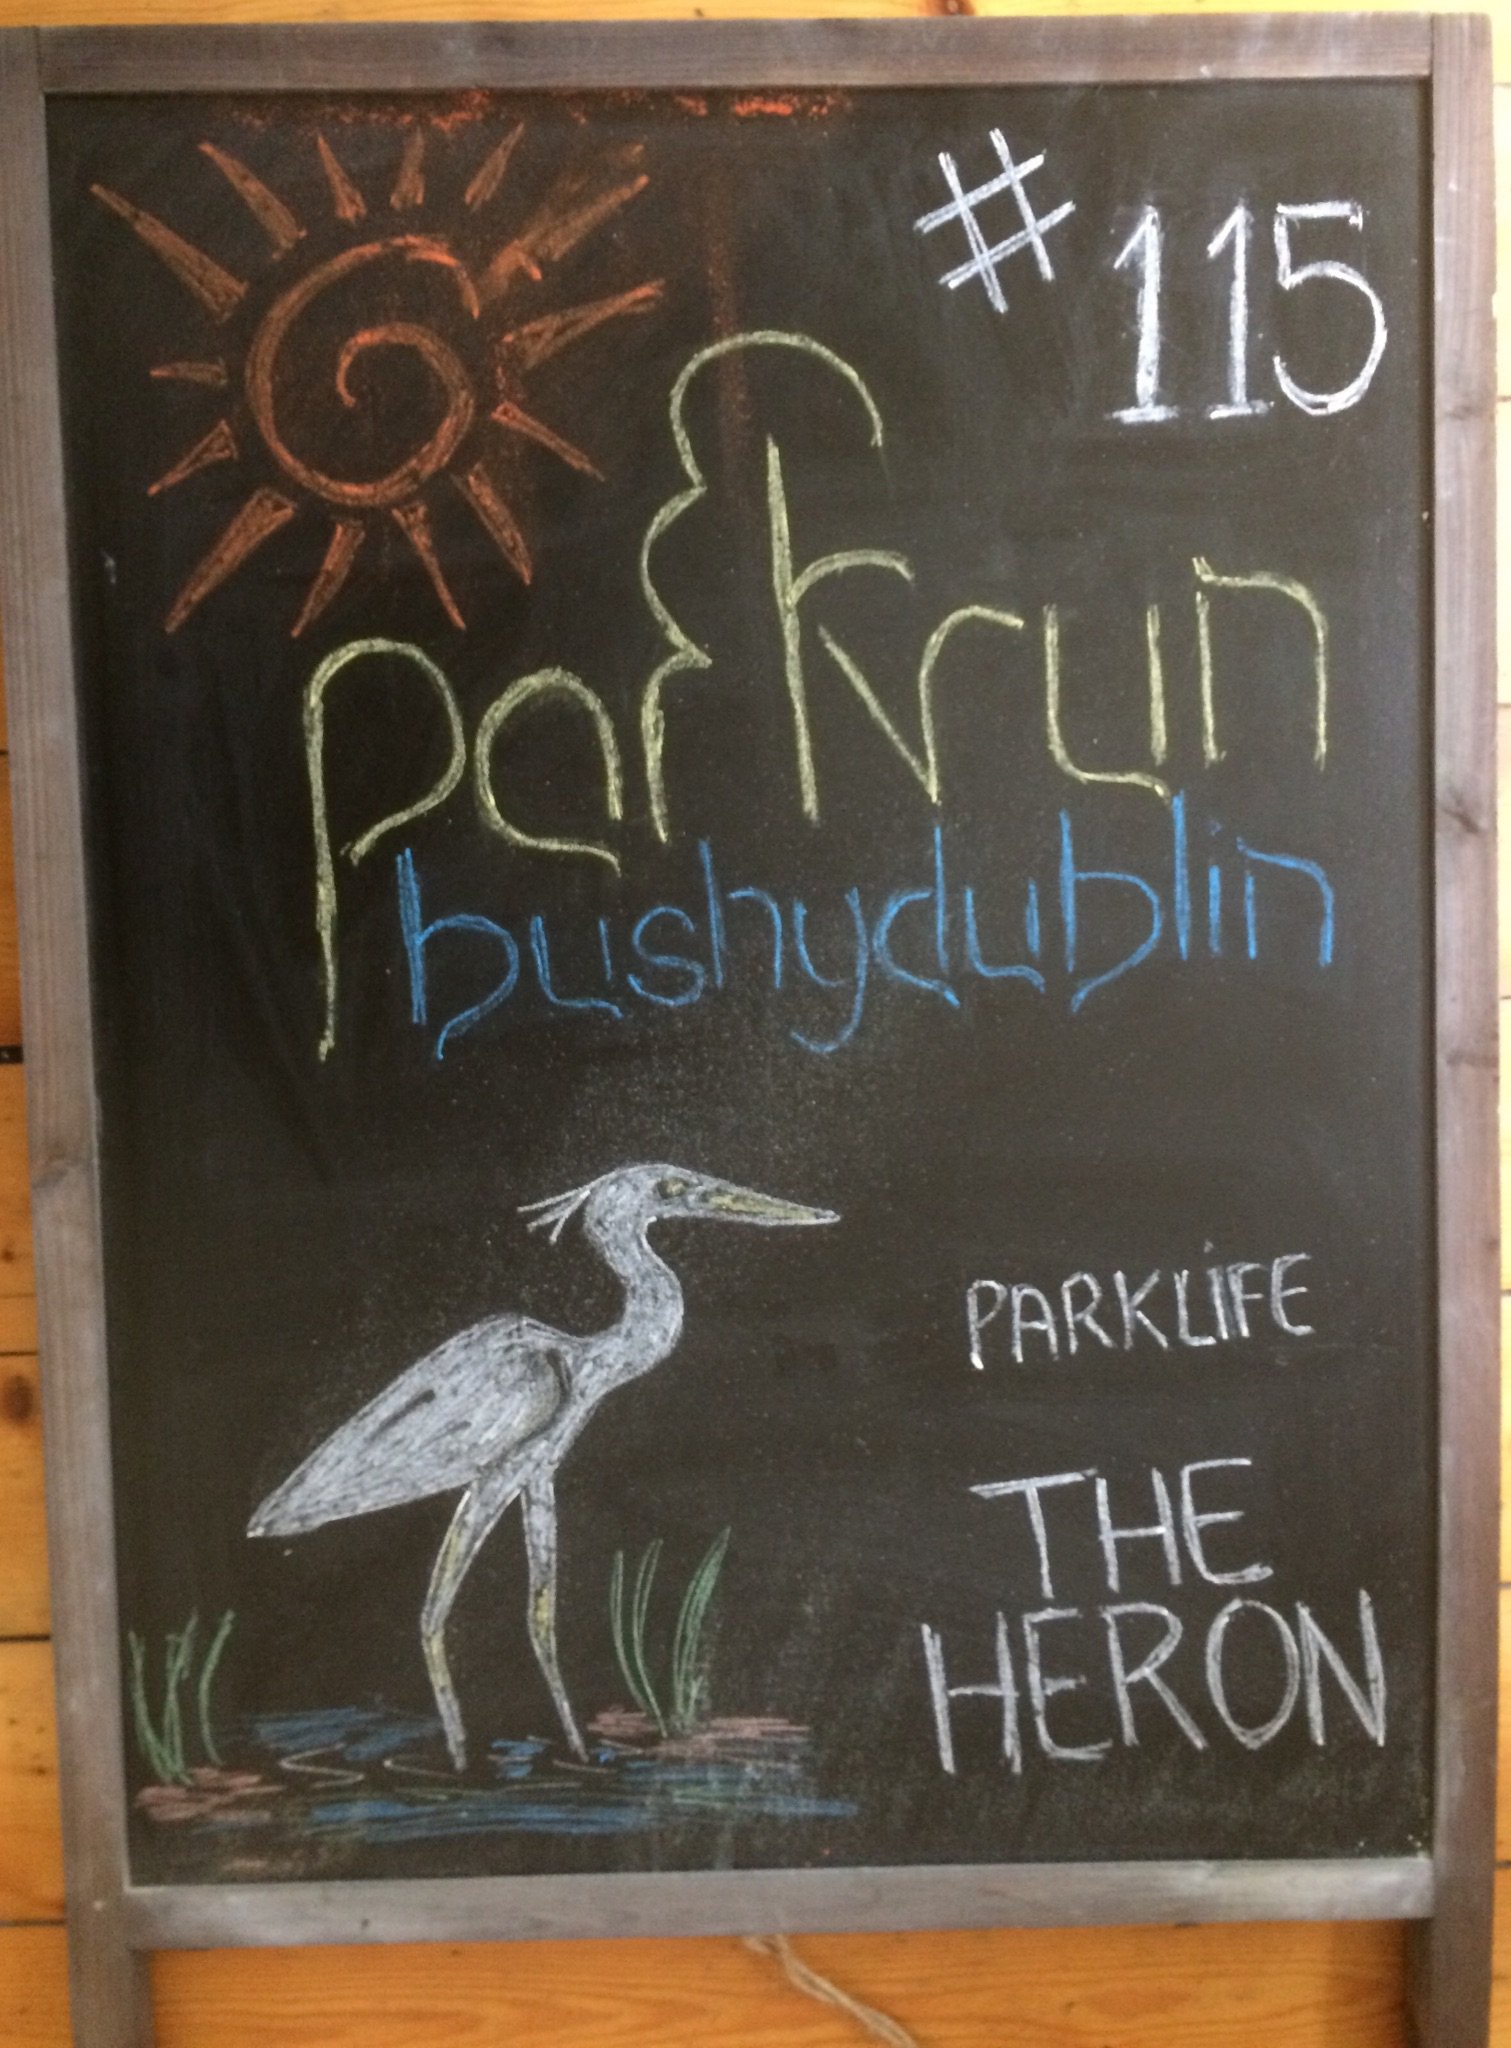 #115
parkrun
bushydublin
PARKLiFE
THE
HERON